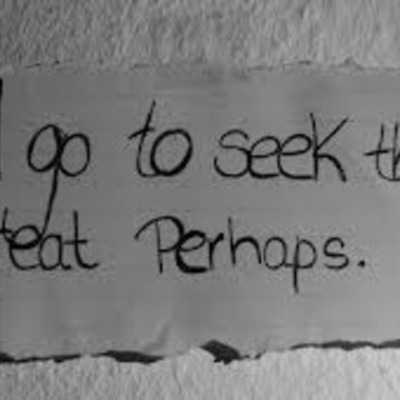 I go to seek th
eat Perhaps.